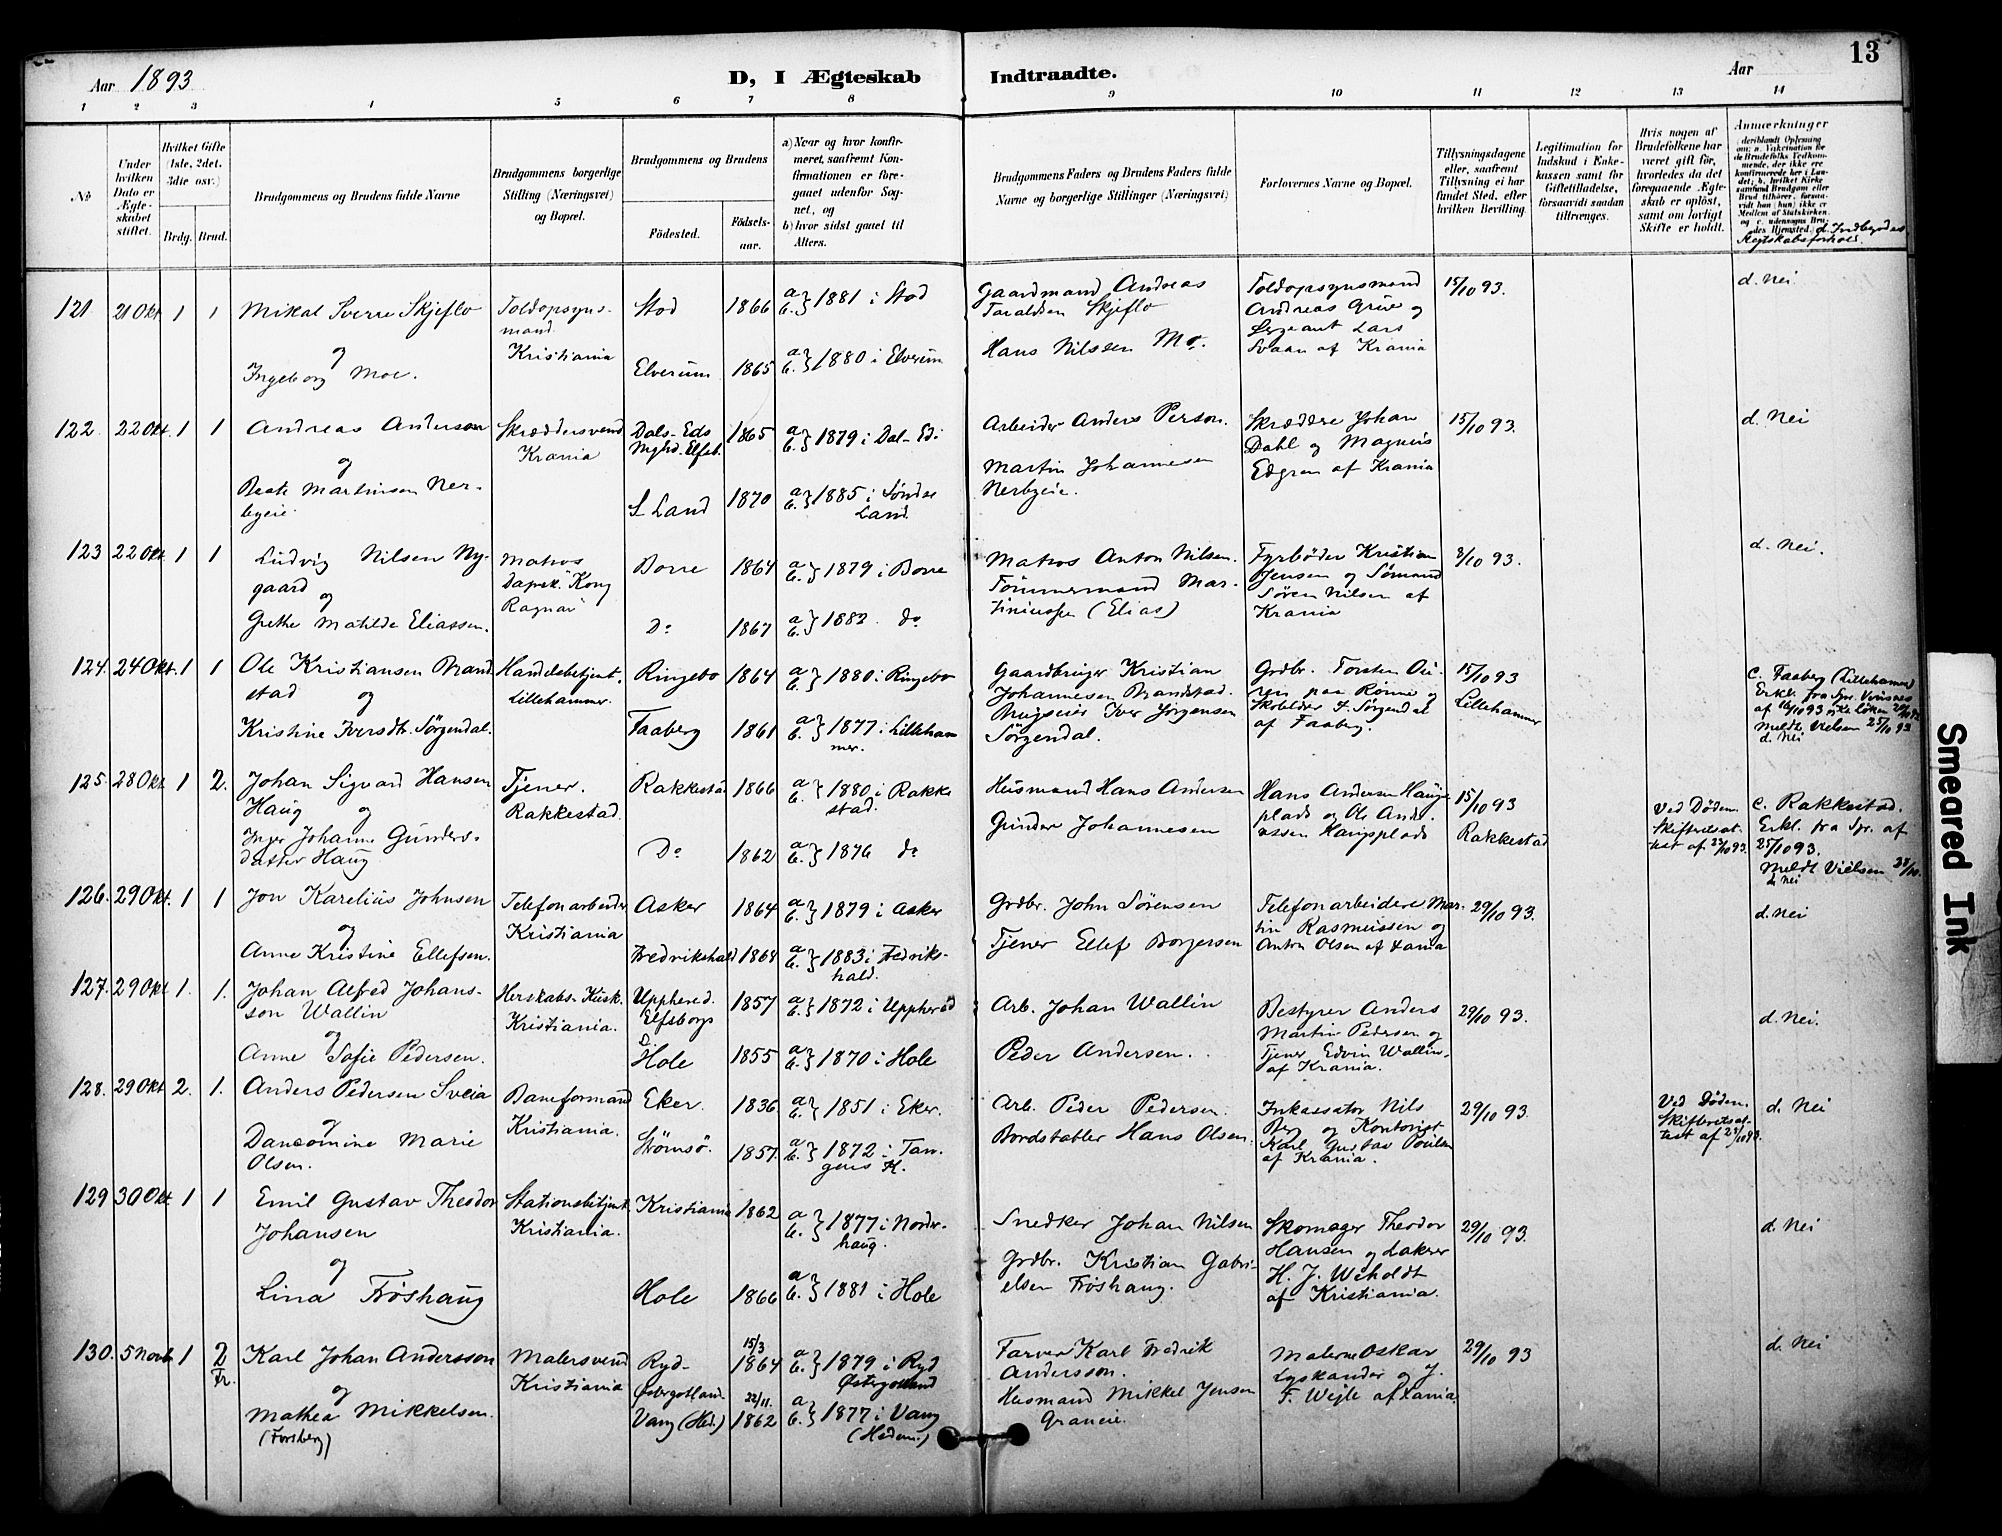 13
Aar 1893.
D, I Ægteskab Indtraadte.
Aar
1 2 3 4 5 6 7 8 9 10 11 12 13 14
№
Under hvilken Dato er Ægteskabet stiftet.
Hvilket Gifte (1ste, 2det, 3die osv.)
Brdg. Brud.
Brudgommens og Brudens fulde Navne
Brudgommens borgerlige Stilling (Næringsvei) og Bopæl.
Brudgommens og Brudens
Födested. Födselsaar.
a) Naar og hvor konfirmeret, saafremt Konfirmationen er foregaaet udenfor Sognet, og
b) hvor sidst gaaet til Alters.
Brudgommens Faders og Brudens Faders fulde Navne og borgerlige Stillinger (Næringsvei)
Forlovernes Navne og Bopæl.
Tillysningsdagene eller, saafremt Tillysning ei har fundet Sted, efter hvilken Bevilling.
Legitimation for Indskud i Enkekassen samt for Giftetilladelse, forsaavidt saadan tiltrænges.
Hvis nogen af Brudefolkene har været gift för, hvorledes da det foregaaende Ægteskab er oplöst, samt om lovligt Skifte er holdt.
Anmærkninger
121 21 Okt 1 1
Mikal Sverre Skjeflo
og
Ingeborg Moe.
Toldopsynsmand
Kristiania
Stod 1866
a b. } 1881 i Stod
Elverum 1865
a b. } 1880 i Elverum
Gaardmand Andreas Taraldsen Skjeflo
Hans Nilssen Mo.
Toldopsynsmand Andreas Grue og Sergeant Lars Svaan af Krania
15/10 93.
d. Nei
122 22 Okt. 1 1
Andreas Anderson
og
Beate Martinsen Nerbyeie.
Skræddersvend
Krania
Dals-Eds 1865
a b. } 1879 i Dal-Ed
S Land 1870
a b. } 1885 i Søndre Land.
Arbeider Anders Person.
Martin Johannesen Nerbyeie.
Skræddere Johan Dahl og Magnus Edgren af Krania
15/10 93.
d. Nei
123 22 Okt. 1 1
Ludvig Nilsen Nygaard
og
Grethe Matilde Eliassen.
Matros
Dapsk. "Kong Ragnar"
Borre 1864
a b. } 1879 i Borre
Do 1867
a b. } 1882 do
Matros Anton Nilsen.
Tömmermand Martiniussen (Elias)
Fyrbøder Kristian Jensen og Sømand Sören Nilsen af Krania
8/10 93.
d. Nei.
124. 24 Okt. 1 1
Ole Kristiansen Brandstad og
Kristine Iversdtr. Sørgendal.
Handelsbetjent,
Lillehammer.
Ringebo 1864
a b. } 1880 i Ringebo
Faaberg 1861
a b. } 1877 i Lillehammer.
Gaardbruger Kristian Johannesen Brandstad.
Iver Jörgensen Sörgendal.
Grdbr. Torsten paa Rønne og Skoleldr. Sørgendal af Faaberg.
15/10 93
Lillehammer
c. Faaberg (Lillehammer)
Erkl. fra Spr.
af 16/10 93
Meldt Vielsen 25/10 93
d. Nei
125. 28 Okt 1 2.
Johan Sigvard Hansen Haug og
Inger Johanne Gundersdatter Haug
Tjener.
Rakkestad.
Rakkestad 1866
a b. } 1880 i Rakkestad.
Do 1862
a b. } 1876 do
Husmand Hans Andersen
Gunder Johannesen
Hans Andersen Haugsplads og Ole Andreassen Haugsplads
15/10 93
Rakkestad
Ved Døden.
Skifteretsattest af 23/10 93.
c. Rakkestad.
Erkl. fra Spr. af 25/10 93.
Meldt Vielsen 28/10.
d. Nei
126. 29 Okt. 1 1
Jon Karelius Johnsen
og
Anne Kristine Ellefsen.
Telefonarbeider
Kristiania
Asker 1864
a b. } 1879 i Asker
Fredrikshald 1868
a b. } 1883 i Fredrikshald.
Grdbr. John Sørensen
Tjener Ellef Borgersen
Telefonarbeidere Martin Rasmussen og Anton Olsen af Xania
29/10 93.
d. Nei
127. 29 Okt 1. 1.
Johan Alfred Johansson Wallin
og
Anne Sofie Pedersen.
Herskabs-Kusk.
Kristiania.
Upphered. Elfsborgs L. 1857
a b. } 1872 i Uppherad
Hole 1855
a b. } 1870 i Hole
Arb. Johan Wallin
Peder Andersen.
Bestyrer Anders Martin Pedersen og Tjener Edvin Wallin af Krania.
29/10 93.
d. Nei.
128. 29 Okt 2. 1.
Anders Pedersen Sveia
og
Dancomine Marie Olsen.
Baneformand
Kristiania.
Eker. 1836
a b. } 1851 i Eker.
Strømsö. 1857.
a b. } 1872 i Tangens K.
Arb. Peder Pedersen.
Bordstabler Hans Olsen.
Inkassator Nils Berg og Kontorist Karl Gustav Poulsen af Krania.
29/10 93
Ved Døden.
Skifteretsattest af 23/10 93.
d. Nei
129 30 Okt. 1 1
Emil Gustav Theodor Johansen
og
Lina Frøshaug
Stationsbetjent
Kristiania.
Kristiania 1862
a b. } 1877 i Norderhaug.
Hole 1866
a b. } 1881 i Hole
Snedker Johan Nilsen
Grdbr. Kristian Gabrielsen Frøshaug.
Skomager Theodor Hansen og Lakerer H. J. Weholdt af Kristiania.
29/10 93.
d. Nei
130. 5 Novb. 1 2 Fr.
Karl Johan Andersson
og
Mathea Mikkelsen.
(Forsberg)
Malersvend
Kristiania
Ryd- Østergotland. 15/3 1864
a b. } 1879 i Ryd Østergotland
Vang (Hed.) 22/11. 1862
a b. } 1877 i Vang (Hedem.)
Farver Karl Fredrik Andersson.
Husmand Mikkel Jensen Graneie.
Malerne Oskar Lyskander og J. F. Wejle af Xania.
29/10 93
d. Nei
Smeared Ink